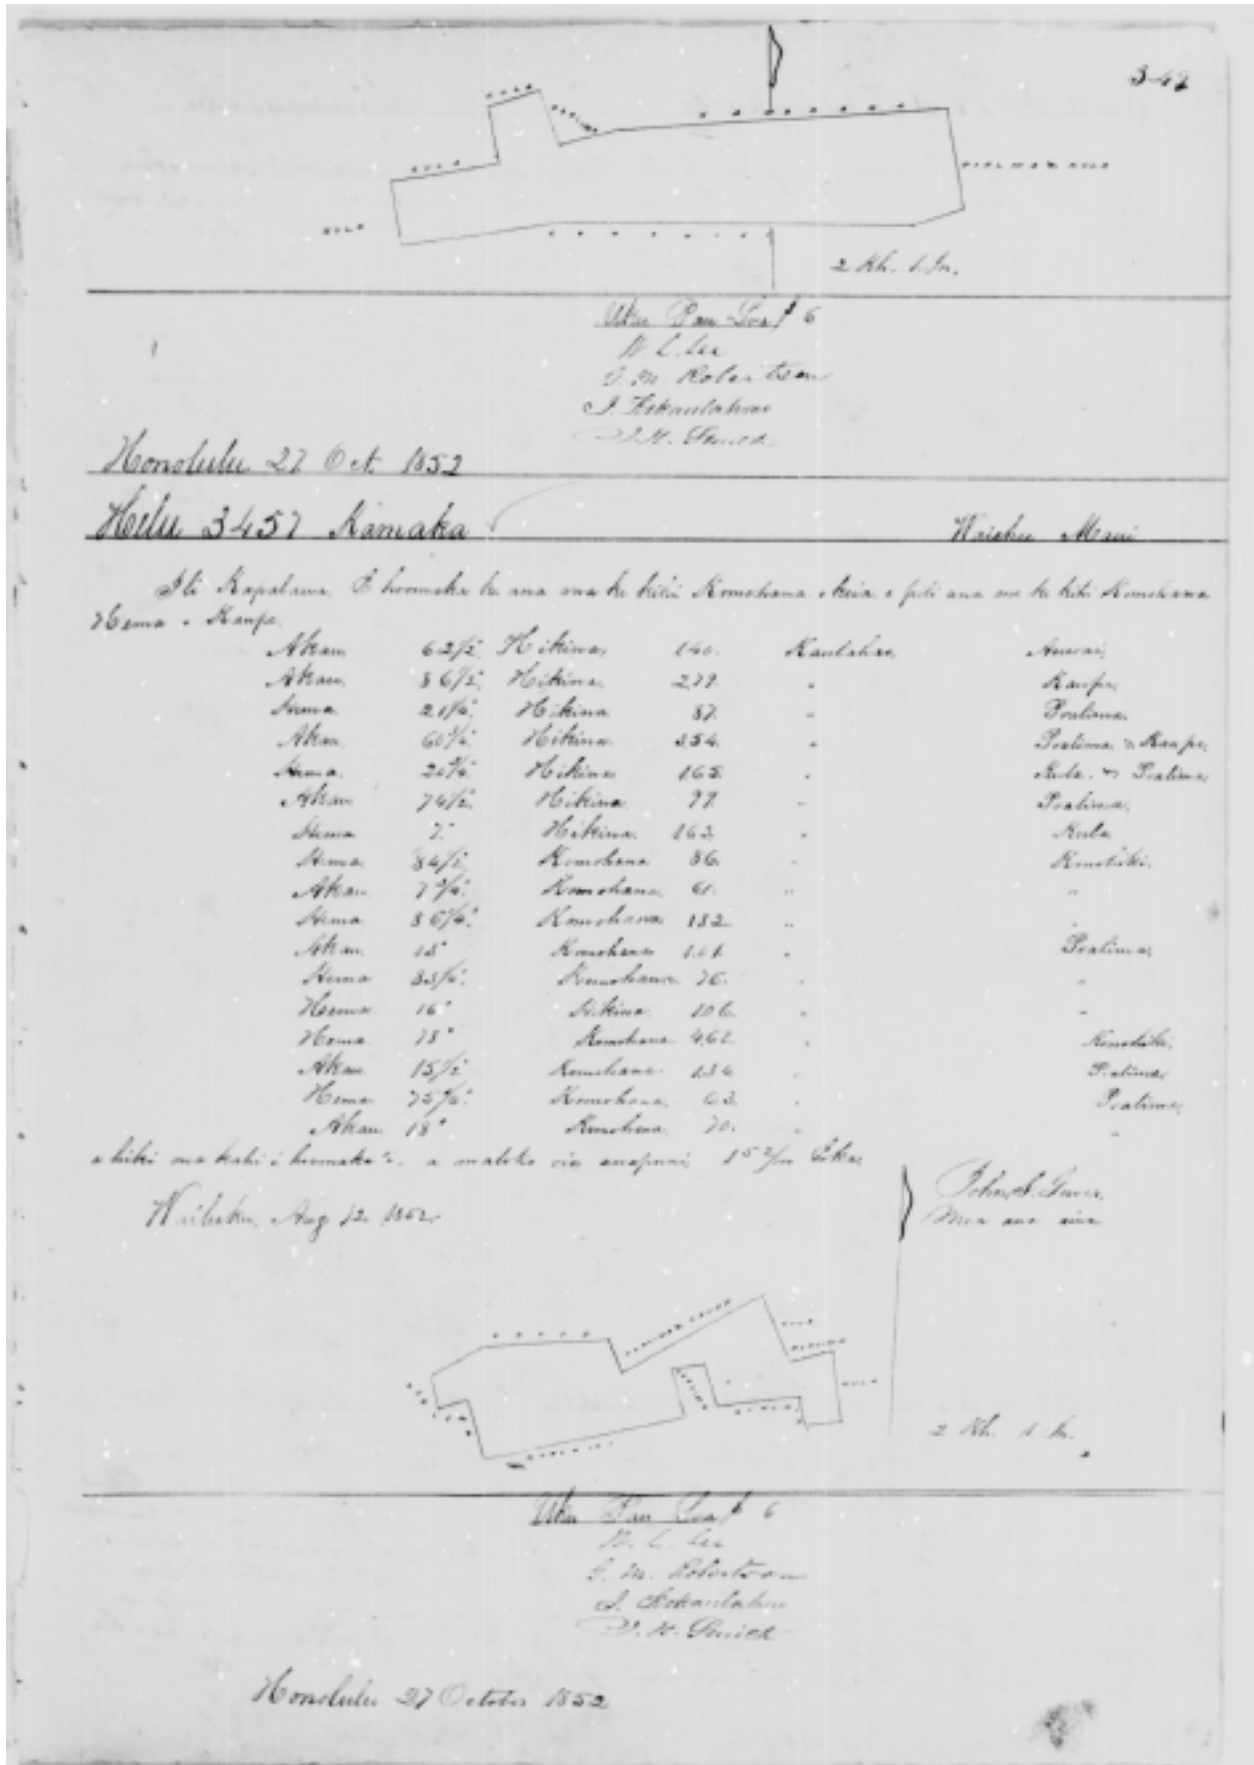 2 Kh. 1 In.
Uku Pau Loa $ 6
W. L. Lee
G. M. Robertson
J. Kekaulahao
J. H. Smith
Honolulu 27 Oct. 1852
Helu 3457 Kamaka Waiehu Maui
Ili Kapalawa. E hoomaka ke ana ma ke kihi Komohana o keia e pili ana me ke kihi Komohana
Hema o Kaupe.
Akau 62 1/2° Hikina 140. Kaulahao Auwai,
Akau. 86 1/2° Hikina. 279. " Kaupe,
Hema 21 1/4° Hikina 87. " Poalima.
Akau. Hikina 354. " Poalima & Kaupe,
Hema. Hikina 165. " Kula. & Poalima,
Akau 74 1/2° Hikina 99. " Poalima,
Hema 7° Hikina. 163. " Kula
Hema 84 1/2° Komohana 86. " Konohiki.
Akau Komohana 61. " "
Hema Komohana 182. " "
Akau 18° Komohana 101. " Poalima,
Hema Komohana 76. " "
Hema 16° Hikina 106. " "
Hema 78° Komohana 462 " Konohiki,
Akau 15 1/2° Komohana 134. " Poalima,
Hema Komohana, 63. " Poalima,
Akau 18° Komohana 70. " "
a hiki ma kahi i hoomaka ai. a maloko oia anapuni, Eka,
Wailuku, Aug 12. 1852. John S. Gower.
Mea ana aina
2 Kh. 1 In.
Uku Pau Loa $ 6
W. L. Lee
G. M. Robertson
J. Kekaulahao
J. H. Smith
Honolulu 27 October 1852